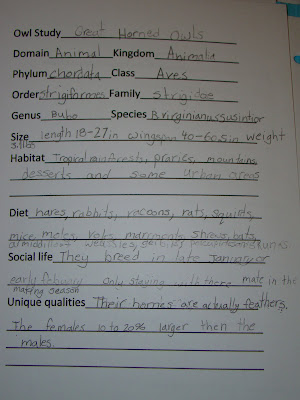 Owl Study Great Horned Owls
Domain Animal Kingdom Animalia
Phylum chordata Class Aves
Order strigiformes Family strigidae
Genus Bubo Species B. virginianus
Size length 18-27in wingspan 40-60.5in weight
Habitat Tropral rainforests, praries, mountains,
desserts and some urban areas
Diet hares, rabbits, racoons, rats, squirls,
mice, moles, voles, shrews, bats,
armidillos weasles,
Social life They breed in late January or
early Feburary only staying with there mate in the
mating season
Unique qualities Their hornes are actually feathers.
The females 10 to 20% larger then the
males.